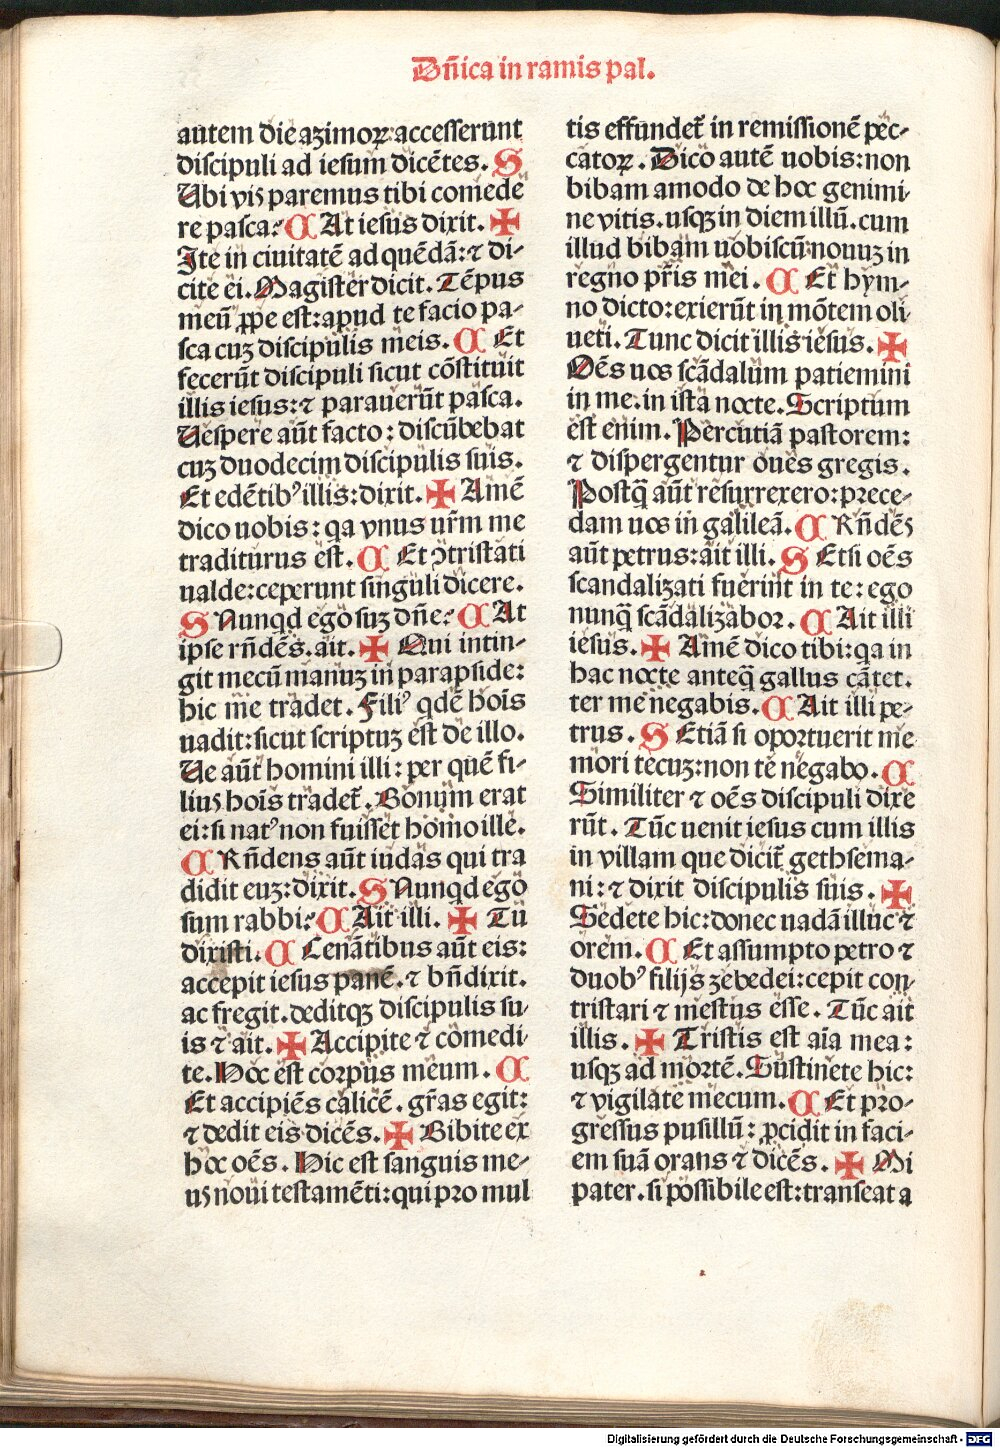 Dñica in ramis pal.
autem die azimoꝝ accesserunt
discipuli ad iesum dicẽtes. S
Ubi vis paremus tibi comede
re pasca? C At iesus dixit. ✠
Ite in ciuitatẽ ad quẽdã: ⁊ di-
cite ei. Magister dicit. Tẽpus
meũ ꝓpe est: apud te facio pa-
sca cuȝ discipulis meis. C Et
fecerũt discipuli sicut cõstituit
illis iesus: ⁊ parauerũt pasca.
Uespere aũt facto: discũbebat
cuȝ duodecim discipulis suis.
Et edẽtibꝰ illis: dixit. ✠ Amẽ
dico uobis: qa vnus ur̃m me
traditurus est. C Et ꝯtristati
ualde: ceperunt singuli dicere.
S Nunqd ego suȝ dñe? C At
ipse rñdẽs. ait. ✠ Qui intin-
git mecũ manuȝ in parapside:
hic me tradet. Filiꝰ qdẽ hoĩs
uadit: sicut scriptuȝ est de illo.
Ue aũt homini illi: per quẽ fi-
lius hoĩs tradet̃. Bonum erat
ei: si natꝰ non fuisset homo ille.
C Rñdens aũt iudas qui tra
didit euȝ: dixit. S Nunqd ego
sum rabbi? C Ait illi. ✠ Tu
dixisti. C Cenãtibus aũt eis:
accepit iesus panẽ. ⁊ bñdixit.
ac fregit. deditqȝ discipulis su-
is ⁊ ait. ✠ Accipite ⁊ comedi-
te. Hoc est corpus meum. C
Et accipiẽs calicẽ. gr̃as egit:
⁊ dedit eis dicẽs. ✠ Bibite ex
hoc oẽs. Hic est sanguis me-
us noui testamẽti: qui pro mul
tis effundet̃ in remissionẽ pec-
catoꝝ. Dico autẽ uobis: non
bibam amodo de hoc genimi-
ne vitis. usqȝ in diem illũ. cum
illud bibam uobiscũ nouuȝ in
regno pr̃is mei. C Et hym-
no dicto: exierũt in mõtem oli
ueti. Tunc dicit illis iesus. ✠
Oẽs uos scãdalum patiemini
in me. in ista nocte. Scriptum
est enim. Percutiã pastorem:
⁊ dispergentur oues gregis.
Postq̃ aũt resurrexero: prece-
dam uos in galileã. C Rñdẽs
aũt petrus: ait illi. S Etsi oẽs
scandalizati fuerint in te: ego
nunq̃ scãdalizabor. C Ait illi
iesus. ✠ Amẽ dico tibi: qa in
hac nocte anteq̃ gallus cãtet.
ter me negabis. C Ait illi pe-
trus. S Etiã si oportuerit me
mori tecuȝ: non te negabo. C
Similiter ⁊ oẽs discipuli dixe
rũt. Tũc uenit iesus cum illis
in villam que dicit̃ gethsema-
ni: ⁊ dixit discipulis suis. ✠
Sedete hic: donec uadã illuc ⁊
orem. C Et assumpto petro ⁊
duobꝰ filijs zebedei: cepit con-
tristari ⁊ mestus esse. Tũc ait
illis. ✠ Tristis est aĩa mea:
usqȝ ad mortẽ. Sustinete hic:
⁊ vigilate mecum. C Et pro-
gressus pusillũ: ꝓcidit in faci-
em suã orans ⁊ dicẽs. ✠ Mi
pater. si possibile est: transeat a
Digitalisierung gefördert durch die Deutsche Forschungsgemeinschaft - DFG